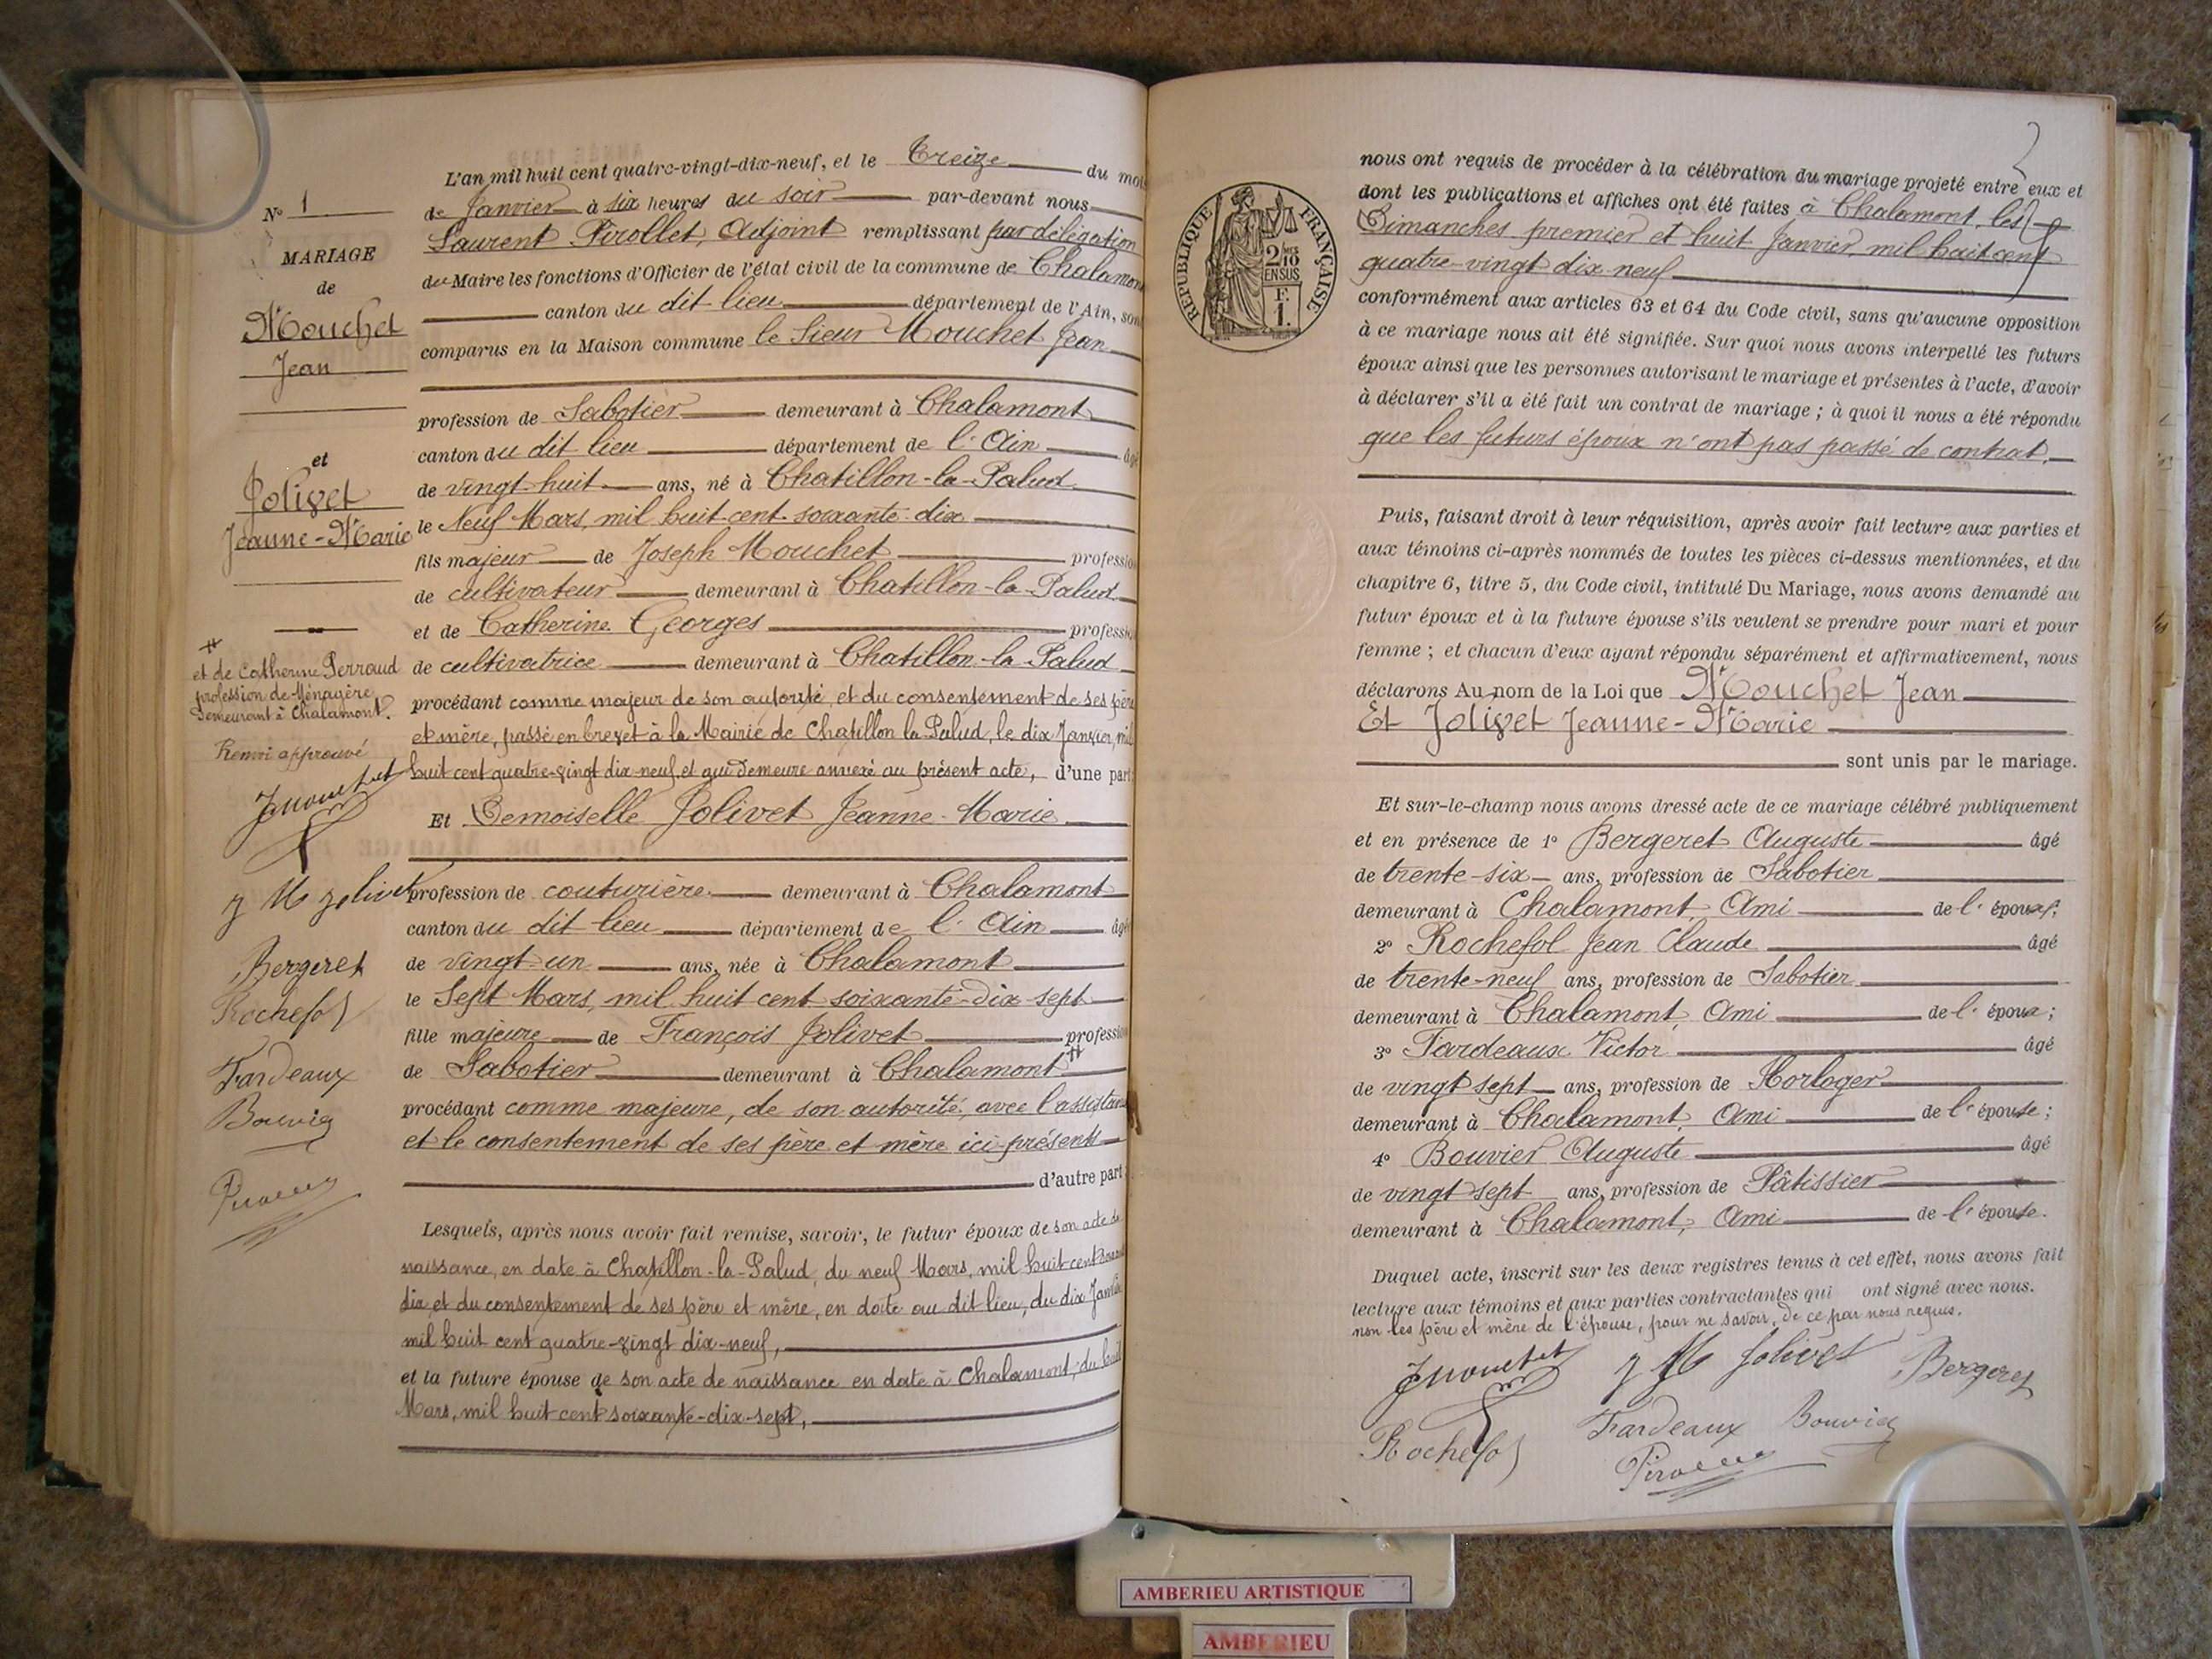 N° 1
MARIAGE
de
Mouchet
Jean
et
Jolivet
Jeanne-Marie
et de Catherine Perraud
profession de Ménagère
demeurant à Chalamont.
Renvoi approuvé
JMouchet
J M Jolivet
Bergeret
Rochefol
Tardeaux
Bouvier
L'an mil huit cent quatre-vingt-dix-neuf, et le Treize du mois
de Janvier à six heures du soir par-devant nous
Laurent Pirollet, Adjoint remplissant par délégation
du Maire les fonctions d'Officier de l'état civil de la commune de Chalamon
canton du dit lieu département de l'Ain, son
comparus en la Maison commune le Sieur Mouchet Jean
profession de Sabotier demeurant à Chalamont
canton du dit lieu département de l'Ain âgé
de vingt-huit ans, né à Chatillon-la-Palud
le Neuf Mars, mil huit-cent-soixante-dix
fils majeur de Joseph Mouchet profession
de cultivateur demeurant à Chatillon-la-Palud
et de Catherine Georges profession
de cultivatrice demeurant à Chatillon-la-Palud
procédant comme majeur de son autorité, et du consentement de ses père
et mère, passé en brevet à la Mairie de Chatillon la Palud, le dix Janvier, mil
huit cent quatre-vingt dix-neuf, et qui demeure annexé au présent acte, d'une part
Et Demoiselle Jolivet Jeanne-Marie
profession de couturière demeurant à Chalamont
canton du dit lieu département de l'Ain âgée
de vingt-un ans, née à Chalamont
le Sept Mars, mil huit cent soixante-dix sept
fille majeure de François Jolivet profession
de Sabotier demeurant à Chalamont
procédant comme majeure, de son autorité, avec l'assistance
et le consentement de ses père et mère ici-présents
d'autre part
Lesquels, après nous avoir fait remise, savoir, le futur époux de son acte de
naissance, en date à Chatillon-la-Palud, du neuf Mars, mil huit cent soixante
dix et du consentement de ses père et mère, en date au dit lieu, du dix Janvier
mil huit cent quatre-vingt dix-neuf,
et la future épouse de son acte de naissance en date à Chalamont, du huit
Mars, mil huit cent soixante-dix-sept,
RÉPUBLIQUE FRANÇAISE
2/10
EN SUS
F.
1.
nous ont requis de procéder à la célébration du mariage projeté entre eux et
dont les publications et affiches ont été faites à Chalamont, les
Dimanches premier et huit Janvier, mil huit cent
quatre-vingt dix-neuf
conformément aux articles 63 et 64 du Code civil, sans qu'aucune opposition
à ce mariage nous ait été signifiée. Sur quoi nous avons interpellé les futurs
époux ainsi que les personnes autorisant le mariage et présentes à l'acte, d'avoir
à déclarer s'il a été fait un contrat de mariage ; à quoi il nous a été répondu
que les futurs époux n'ont pas passé de contrat.
Puis, faisant droit à leur réquisition, après avoir fait lecture aux parties et
aux témoins ci-après nommés de toutes les pièces ci-dessus mentionnées, et du
chapitre 6, titre 5, du Code civil, intitulé Du Mariage, nous avons demandé au
futur époux et à la future épouse s'ils veulent se prendre pour mari et pour
femme ; et chacun d'eux ayant répondu séparément et affirmativement, nous
déclarons Au nom de la Loi que Mouchet Jean
Et Jolivet Jeanne-Marie
sont unis par le mariage.
Et sur-le-champ nous avons dressé acte de ce mariage célébré publiquement
et en présence de 1° Bergeret Auguste âgé
de trente-six ans, profession de Sabotier
demeurant à Chalamont, Ami de l'époux;
2° Rochefol Jean Claude âgé
de trente-neuf ans, profession de Sabotier
demeurant à Chalamont, Ami de l'époux;
3° Tardeaux Victor âgé
de vingt sept ans, profession de Horloger
demeurant à Chalamont, Ami de l'épouse;
4° Bouvier Auguste âgé
de vingt sept ans, profession de Pâtissier
demeurant à Chalamont, Ami de l'épouse.
Duquel acte, inscrit sur les deux registres tenus à cet effet, nous avons fait
lecture aux témoins et aux parties contractantes qui ont signé avec nous.
non les père et mère de l'épouse, pour ne savoir, de ce par nous requis.
JMouchet J M Jolivet Bergeret
Rochefol Tardeaux Bouvier
AMBERIEU ARTISTIQUE
AMBERIEU